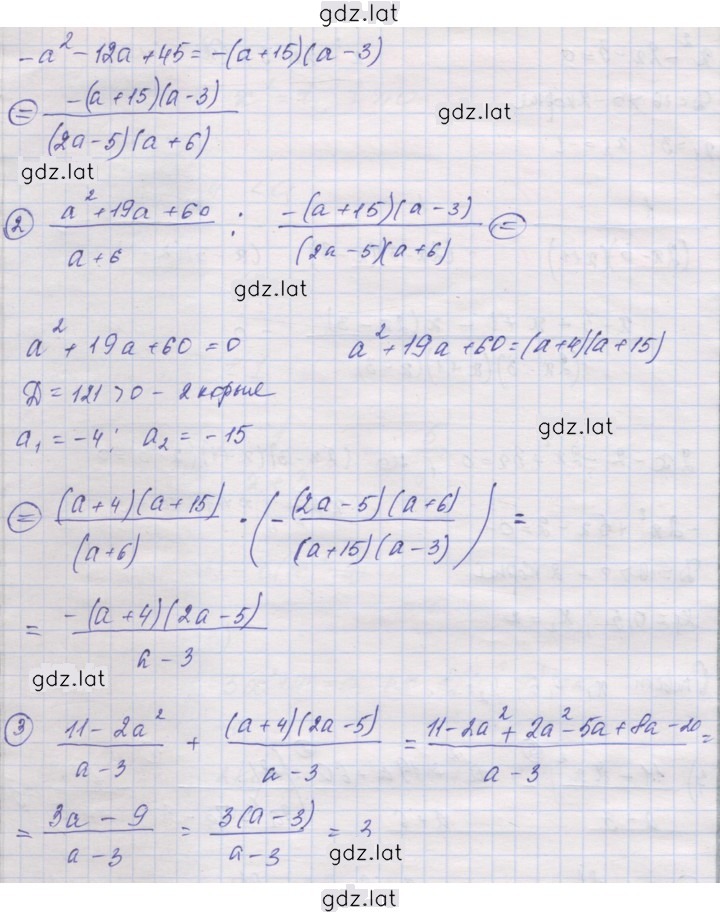 gdz.lat
-a² - 12a + 45 = -(a+15)(a-3)
= -(a+15)(a-3) / (2a-5)(a+6)
gdz.lat
gdz.lat
② a²+19a+60 / a+6 : -(a+15)(a-3) / (2a-5)(a+6) =
gdz.lat
a² + 19a + 60 = 0 a² + 19a + 60 = (a+4)(a+15)
Д = 121 > 0 - 2 корня
gdz.lat
a₁ = -4; a₂ = -15
= (a+4)(a+15) / (a+6) · (- (2a-5)(a+6) / (a+15)(a-3)) =
= -(a+4)(2a-5) / a-3
gdz.lat
③ 11-2a² / a-3 + (a+4)(2a-5) / a-3 = 11-2a²+2a²-5a+8a-20 / a-3 =
= 3a-9 / a-3 = 3(a-3) / a-3 = 3
gdz.lat
gdz.lat